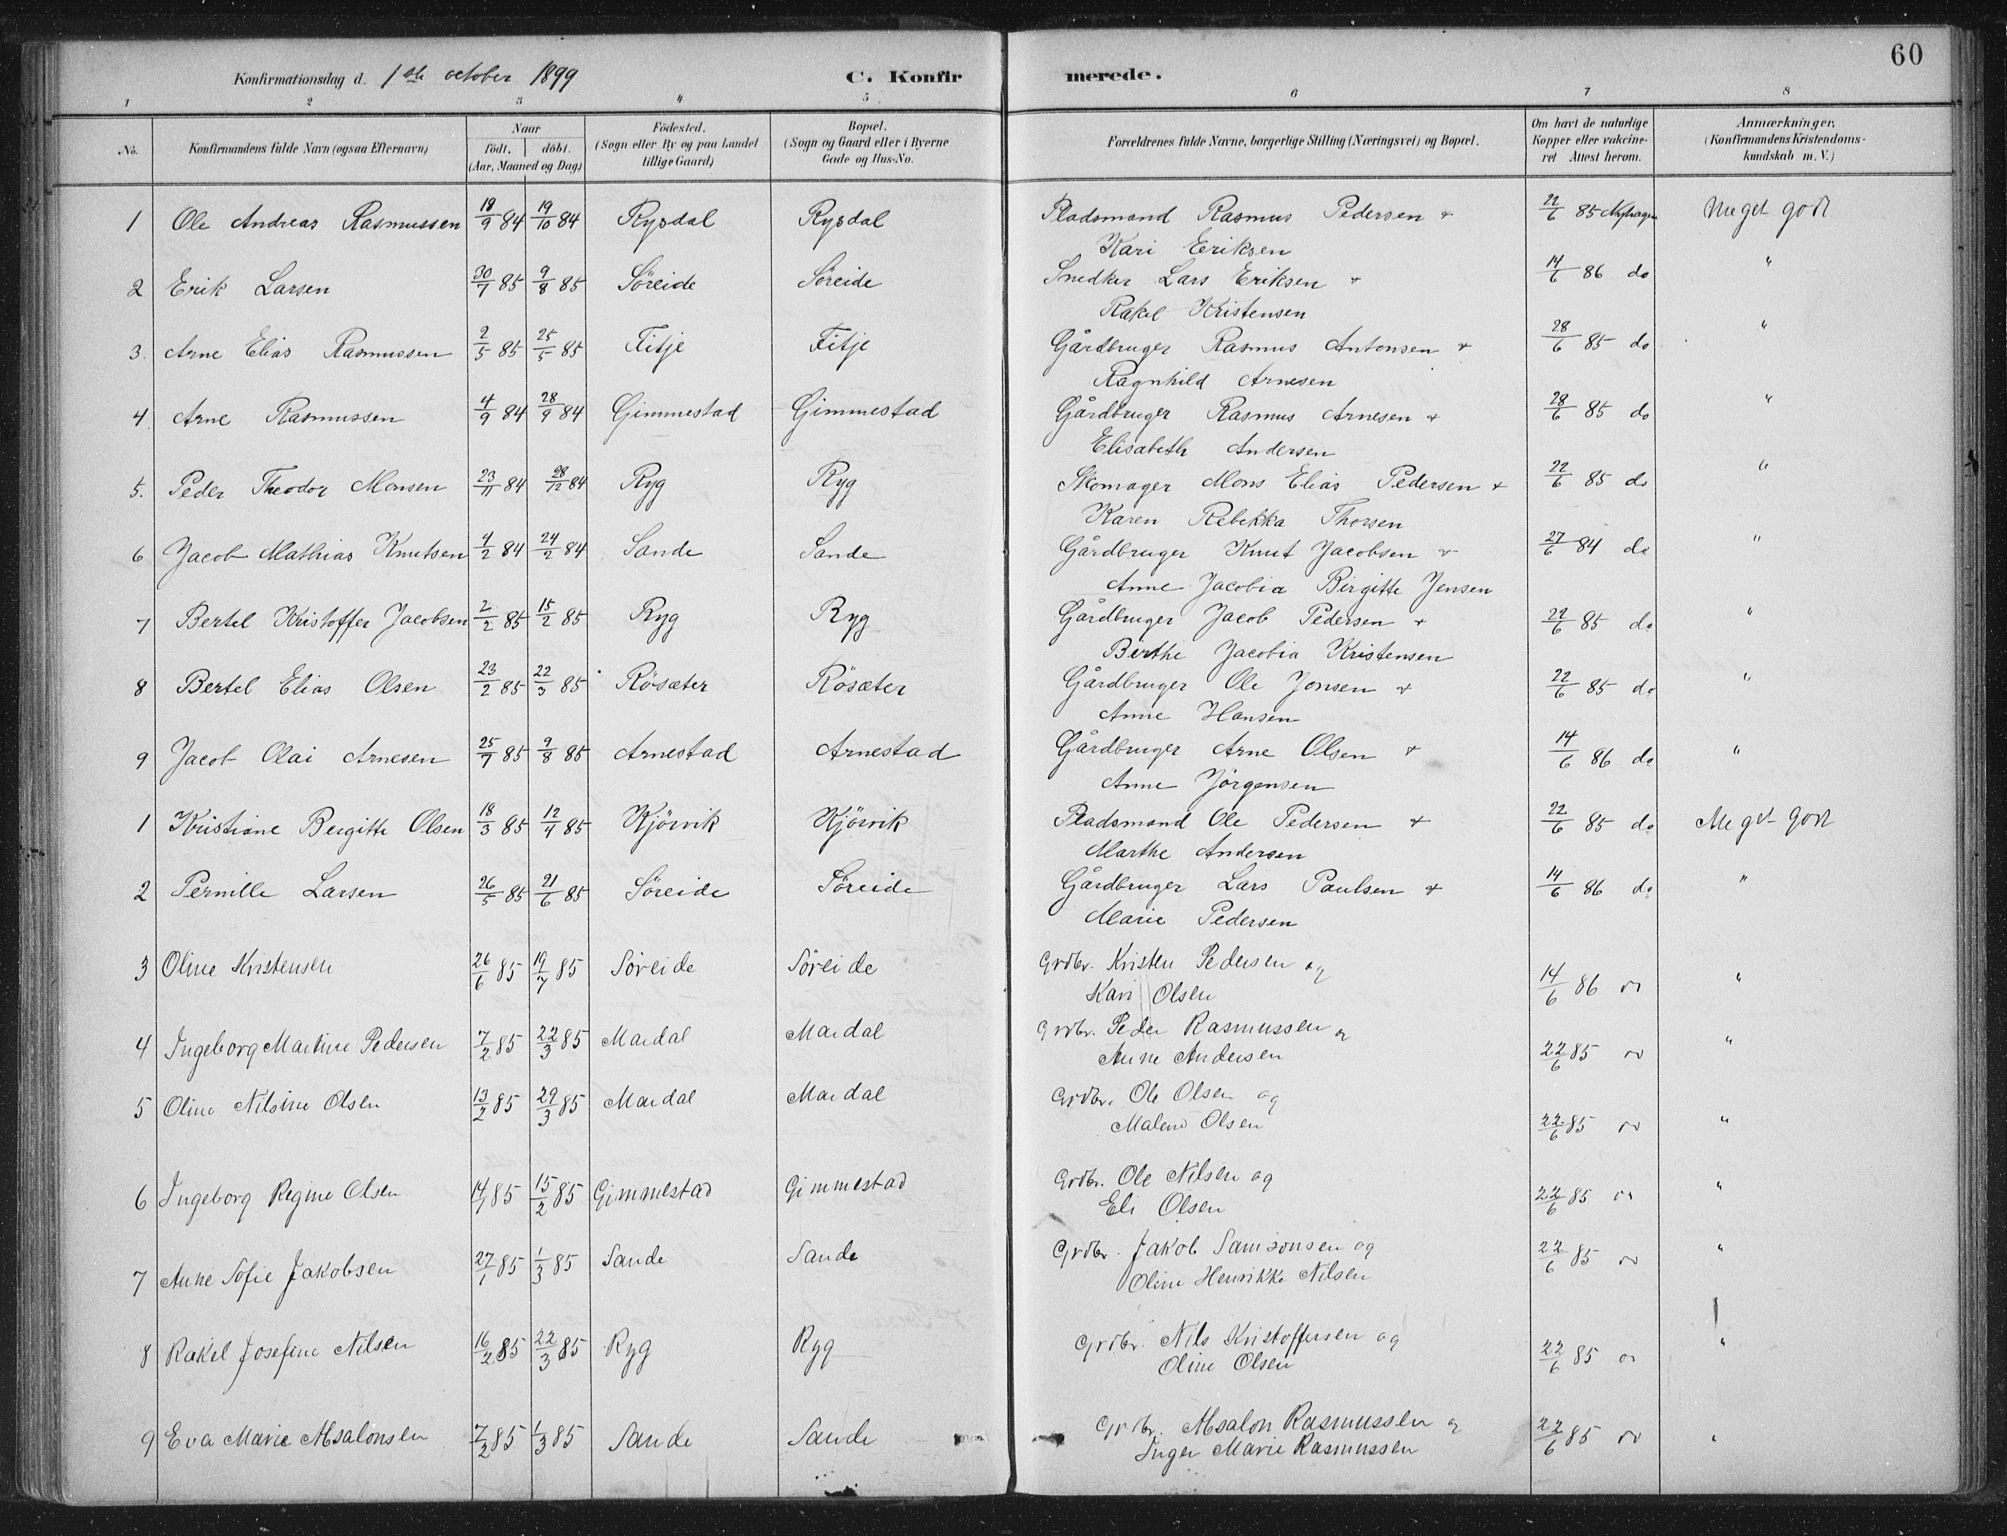 60
Konfirmationsdag d. 1ste october 1899 C. Konfirmerede.
1 2 3 4 5 6 7 8
No. Konfirmandens fulde Navn (ogsaa Efternavn) Naar födt. döbt. (Aar, Maaned og Dag) Födested. (Sogn eller By og paa Landet tillige Gaard) Bopæl. (Sogn og Gaard eller i Byerne Gade og Hus-No. Forældrenes fulde Navne, borgerlige Stilling (Næringsvei) og Bopæl. Om havt de naturlige Kopper eller vaccineret Attest herom. Anmærkninger. (Konfirmandens Kristendomskundskab m. V.)
1 Ole Andreas Rasmussen 18/9 84 19/10 84 Rysdal Rysdal Pladsmand Rasmus Pedersen + 22/6 85 Nyhagen Meget godt
Kari Eriksen
2 Erik Larsen 30/7 85 9/8 85 Söreide Söreide Snedker Lars Eriksen + 14/6 86 do "
Rakel Kristensen
3. Arne Elias Rasmussen 2/5 85 25/5 85 Fitje Fitje Gårdbruger Rasmus Antonsen + 28/6 85 do "
Ragnhild Arnesen
4 Arne Rasmussen 4/9 84 28/9 84 Gimmestad Gimmestad Gårdbruger Rasmus Arnesen + 28/6 85 do "
Elisabeth Andersen
5. Peder Theodor Monsen 23/11 84 28/12 84 Ryg Ryg Skomager Mons Elias Pedersen + 22/6 85 do "
Karen Rebekka Thorsen
6 Jacob Mathias Knutsen 4/2 84 24/2 84 Sande Sande Gårdbruger Knut Jacobsen + 27/6 84 do "
Anne Jacobia Birgitte Jensen
7 Bertel Kristoffer Jacobsen 2/2 85 15/2 85 Ryg Ryg Gårdbruger Jacob Pedersen + 22/6 85 do "
Birthe Jacobia Kristensen
8 Bertel Elias Olsen 23/2 85 22/3 85 Rösæter Rösæter Gårdbruger Ole Jonsen + 22/6 85 do "
Anne Hansen
9 Jacob Olai Arnesen 25/7 85 9/8 85 Arnestad Arnestad Gårdbruger Arne Olsen + 14/6 86 do "
Anne Jörgensen
1 Kristiane Bergitte Olsen 18/3 85 12/4 85 Kjörvik Kjörvik Pladsmand Ole Pedersen + 22/6 85 do Meget godt
Marthe Andersen
2 Pernille Larsen 26/5 85 21/6 85 Söreide Söreide Gårdbruger Lars Paulsen + 14/6 86 do "
Marie Pedersen
3 Oline Kristensen 26/6 85 19/7 85 Söreide Söreide Grdbr. Kristen Pedersen og
Kari Olsen 14/6 86 do "
4 Ingeborg Martine Pedersen 7/2 85 22/3 85 Mardal Mardal Grdbr. Peder Rasmussen og
Anne Andersen 22/6 85 do "
5 Oline Nilsine Olsen 13/2 85 29/3 85 Mardal Mardal Grdbr. Ole Olsen og
Malene Olsen 22/6 85 do "
6 Ingeborg Regine Olsen 14/1 85 15/2 85 Gimmestad Gimmestad Grdbr. Ole Nilsen og
Eli Olsen 22/6 85 do "
7 Anne Sofie Jakobsen 27/1 85 1/3 85 Sande Sande Grdbr. Jakob Samsonsen og 22/6 85 do "
Oline Henrikke Nilsen
8 Rakel Josefine Nilsen 16/2 85 22/3 85 Ryg Ryg Grdbr. Nils Kristoffersen og 22/6 85 do "
Oline Olsen
9 Eva Marie Absalonsen 7/2 85 1/3 85 Sande Sande Grdbr. Absalon Rasmussen og 22/6 85 do "
Inger Marie Rasmussen